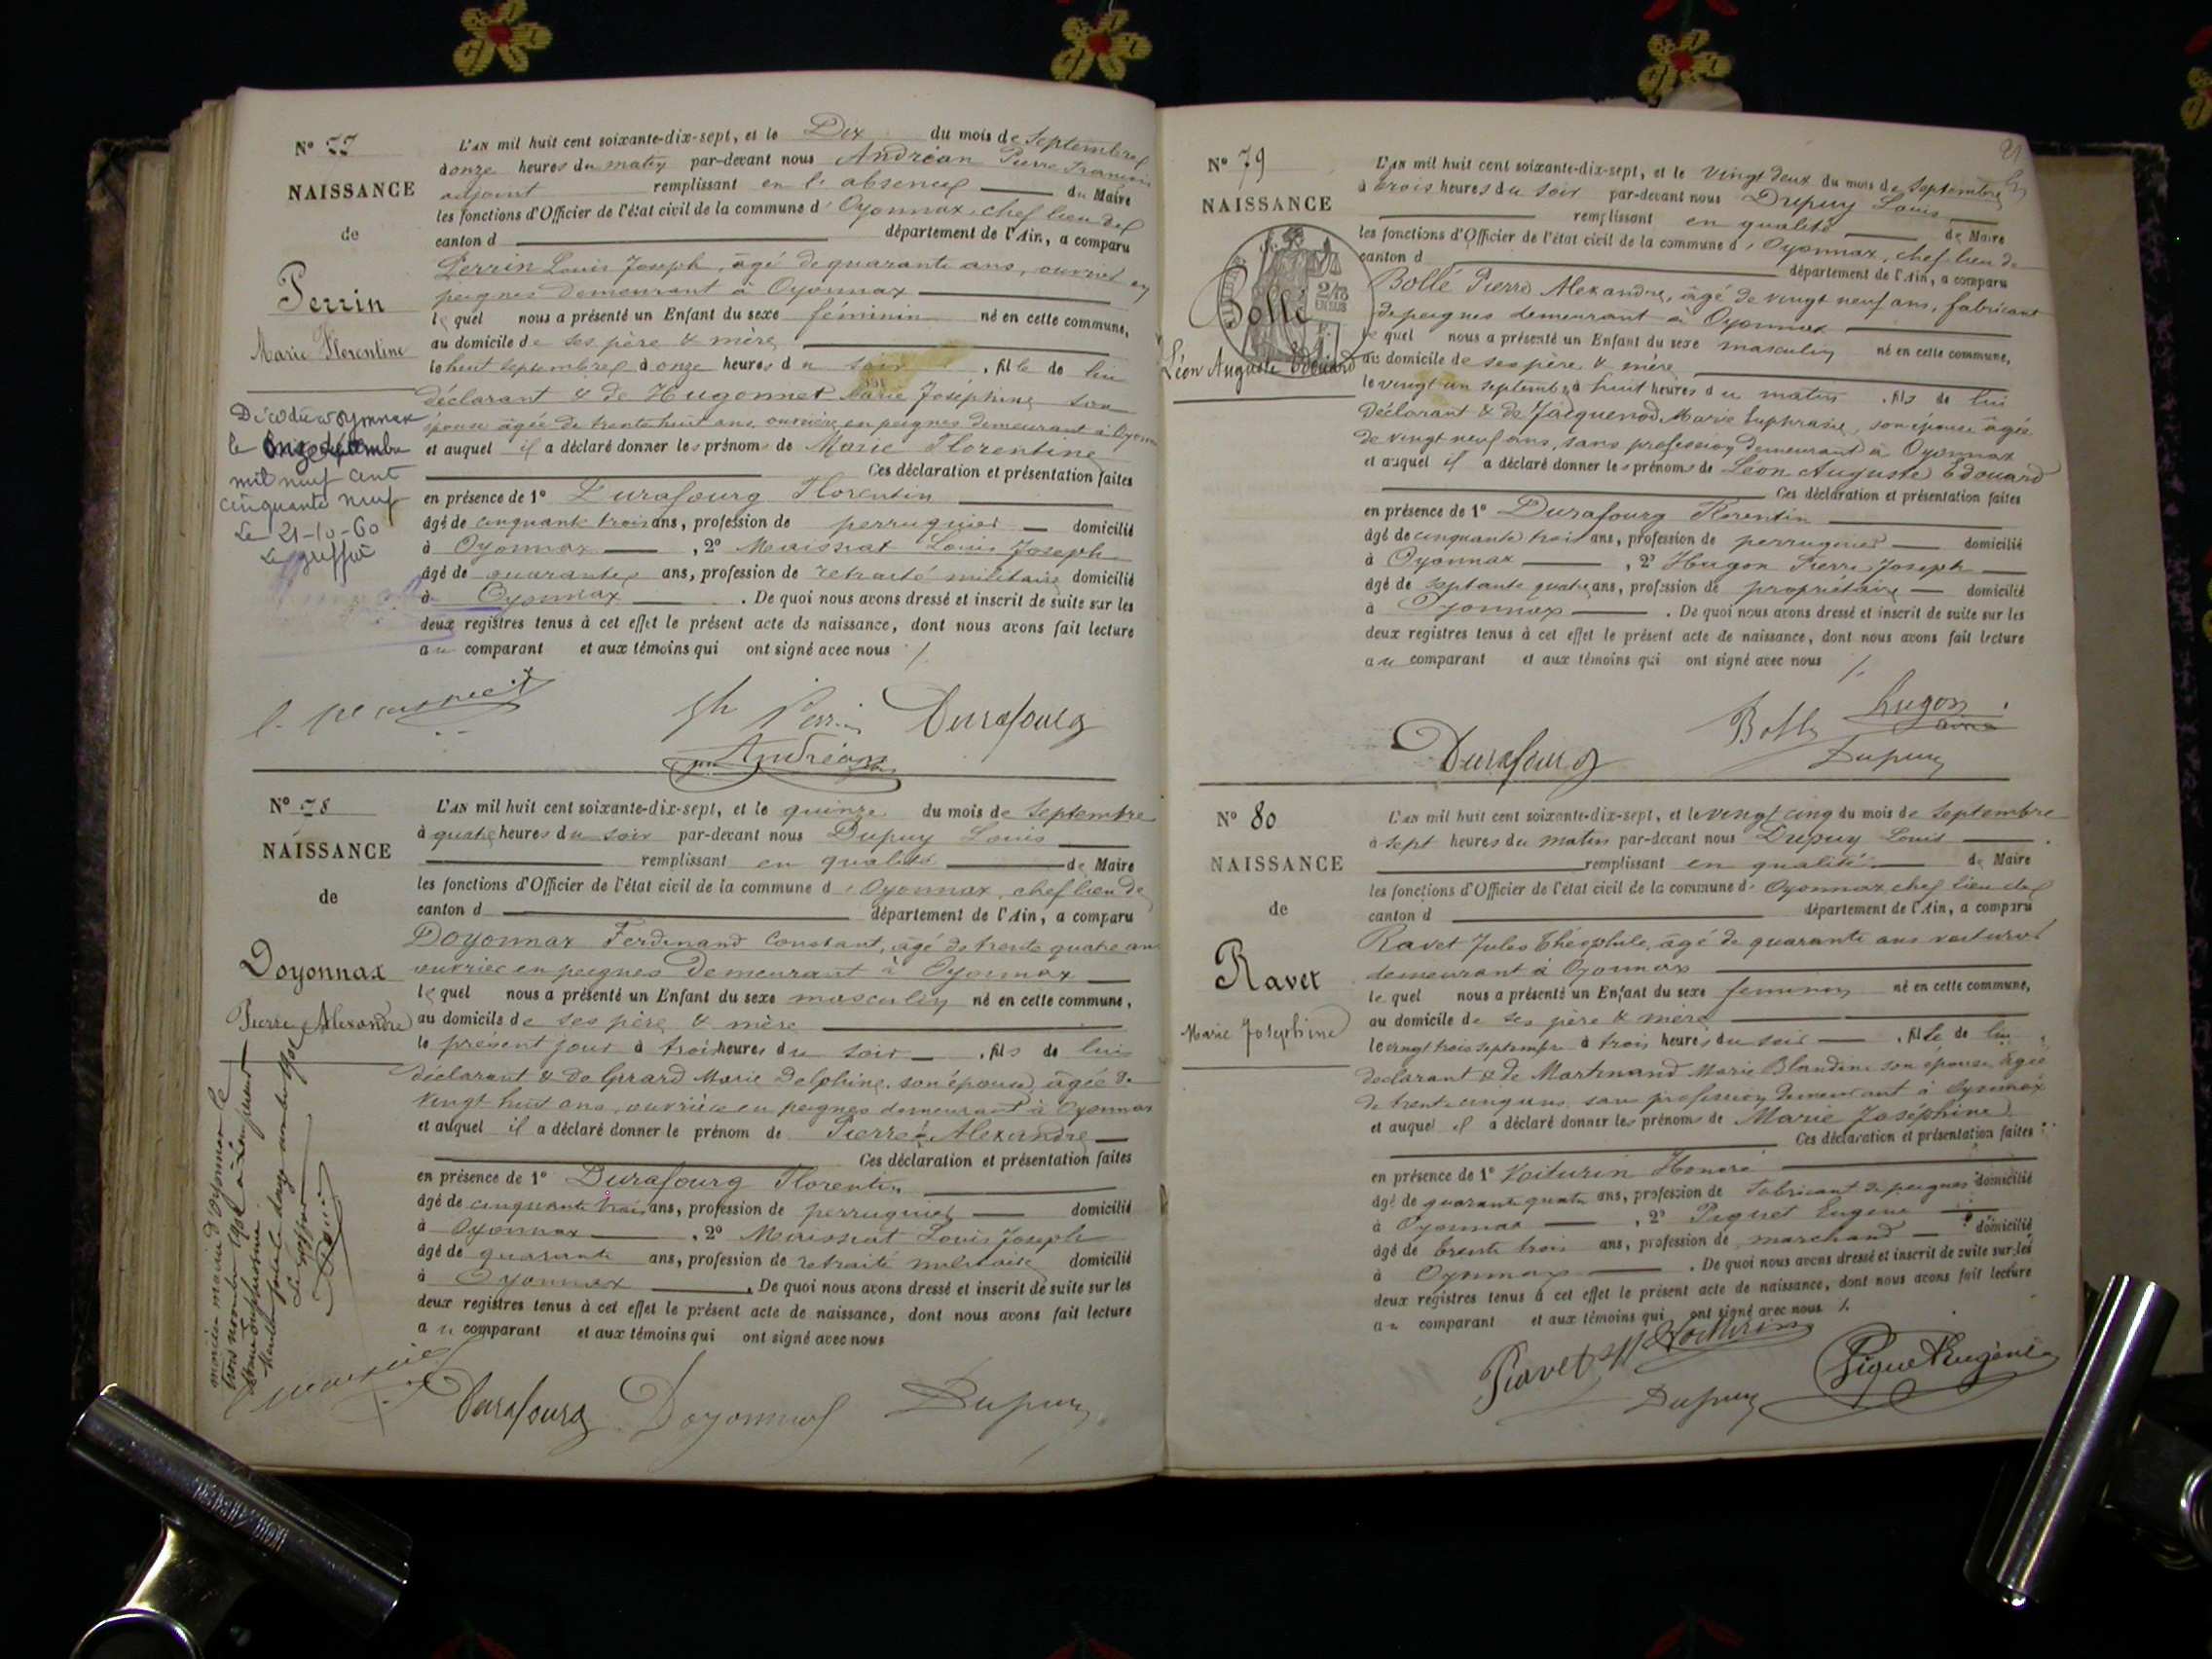 N° 77
NAISSANCE
de
Perrin
Marie Florentine
Décédée à Oyonnax
le onze décembre
mil neuf cent
cinquante neuf
Le 21-10-60
Le greffier
L'AN mil huit cent soixante-dix-sept, et le Dix du mois de Septembre
à onze heures du matin par-devant nous Andréan Pierre François
adjoint remplissant en l'absence du Maire
les fonctions d'Officier de l'état civil de la commune d'Oyonnax, chef lieu de
canton d département de l'Ain, a comparu
Perrin Louis Joseph, âgé de quarante ans, ouvrier en
peignes demeurant à Oyonnax
lequel nous a présenté un Enfant du sexe féminin né en cette commune,
au domicile de ses père & mère
le huit septembre à onze heures du soir, fille de lui
déclarant & de Hugonnet Marie Joséphine son
épouse âgée de trente huit ans, ouvrière en peignes demeurant à Oyonnax
et auquel il a déclaré donner les prénoms de Marie Florentine
Ces déclaration et présentation faites
en présence de 1° Durafourg Florentin
âgé de cinquante trois ans, profession de perruquier domicilié
à Oyonnax, 2° Maissiat Louis Joseph
âgé de quarante ans, profession de retraité militaire domicilié
à Oyonnax. De quoi nous avons dressé et inscrit de suite sur les
deux registres tenus à cet effet le présent acte de naissance, dont nous avons fait lecture
au comparant et aux témoins qui ont signé avec nous
Perrin Durafourg
Andréan
N° 78
NAISSANCE
de
Doyonnax
Pierre Alexandre
L'AN mil huit cent soixante-dix-sept, et le quinze du mois de Septembre
à quatre heures du soir par-devant nous Dupuy Louis
remplissant en qualité de Maire
les fonctions d'Officier de l'état civil de la commune d'Oyonnax, chef lieu de
canton d département de l'Ain, a comparu
Doyonnax Ferdinand Constant, âgé de trente quatre ans
ouvrier en peignes demeurant à Oyonnax
lequel nous a présenté un Enfant du sexe masculin né en cette commune,
au domicile de ses père & mère
le présent jour à trois heures du soir, fils de lui
déclarant & de Girard Marie Delphine, son épouse, âgée de
vingt-huit ans, ouvrière en peignes demeurant à Oyonnax
et auquel il a déclaré donner le prénom de Pierre Alexandre
Ces déclaration et présentation faites
en présence de 1° Durafourg Florentin
âgé de cinquante trois ans, profession de perruquier domicilié
à Oyonnax, 2° Maissiat Louis Joseph
âgé de quarante ans, profession de retraité militaire domicilié
à Oyonnax. De quoi nous avons dressé et inscrit de suite sur les
deux registres tenus à cet effet le présent acte de naissance, dont nous avons fait lecture
au comparant et aux témoins qui ont signé avec nous
Durafourg Doyonnax Dupuy
21
N° 79
NAISSANCE
Bollé
Léon Auguste Edouard
L'AN mil huit cent soixante-dix-sept, et le vingt deux du mois de Septembre
à trois heures du soir par-devant nous Dupuy Louis
remplissant en qualité de Maire
les fonctions d'Officier de l'état civil de la commune d'Oyonnax, chef lieu de
canton d département de l'Ain, a comparu
Bollé Pierre Alexandre, âgé de vingt neuf ans, fabricant
de peignes demeurant à Oyonnax
lequel nous a présenté un Enfant du sexe masculin né en cette commune,
au domicile de ses père & mère
le vingt un septembre à huit heures du matin, fils de lui
déclarant & de Jacquenod Marie Euphrasie, son épouse âgée
de vingt neuf ans, sans profession demeurant à Oyonnax
et auquel il a déclaré donner les prénoms de Léon Auguste Edouard
Ces déclaration et présentation faites
en présence de 1° Durafourg Florentin
âgé de cinquante trois ans, profession de perruquier domicilié
à Oyonnax, 2° Hugon Pierre Joseph
âgé de septante quatre ans, profession de propriétaire domicilié
à Oyonnax. De quoi nous avons dressé et inscrit de suite sur les
deux registres tenus à cet effet le présent acte de naissance, dont nous avons fait lecture
au comparant et aux témoins qui ont signé avec nous
Durafourg Bollé hugon
Dupuy
N° 80
NAISSANCE
de
Ravet
Marie Joséphine
L'AN mil huit cent soixante-dix-sept, et le vingt cinq du mois de Septembre
à sept heures du matin par-devant nous Dupuy Louis
remplissant en qualité de Maire
les fonctions d'Officier de l'état civil de la commune d'Oyonnax, chef lieu de
canton d département de l'Ain, a comparu
Ravet Jules Théophile, âgé de quarante ans voiturier
demeurant à Oyonnax
lequel nous a présenté un Enfant du sexe féminin né en cette commune,
au domicile de ses père & mère
le vingt trois septembre à trois heures du soir, fille de lui
déclarant & de Martinand Marie Blandine son épouse âgée
de trente cinq ans, sans profession demeurant à Oyonnax
et auquel il a déclaré donner les prénoms de Marie Joséphine
Ces déclaration et présentation faites
en présence de 1° Voiturin Honoré
âgé de quarante quatre ans, profession de fabricant de peignes domicilié
à Oyonnax, 2° Piquet Eugène
âgé de trente trois ans, profession de marchand domicilié
à Oyonnax. De quoi nous avons dressé et inscrit de suite sur les
deux registres tenus à cet effet le présent acte de naissance, dont nous avons fait lecture
au comparant et aux témoins qui ont signé avec nous
Ravet Voiturin
Dupuy Piquet Eugène